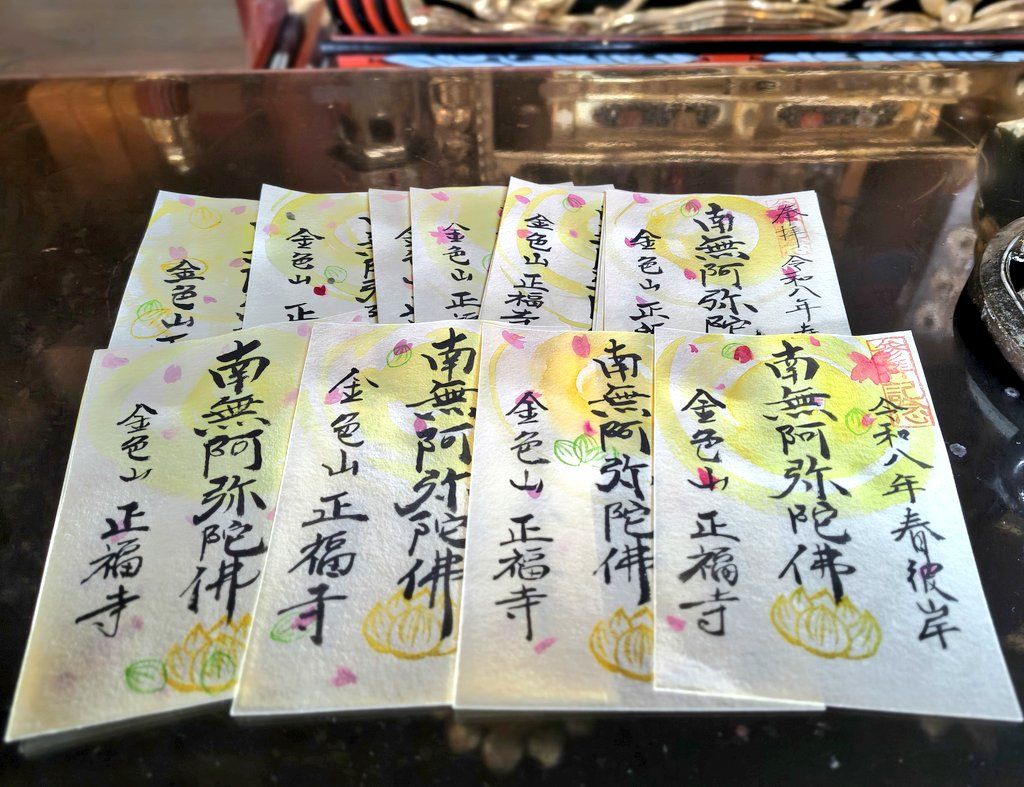 奉拝
令和八年春
南無阿弥陀
金色山 正
金色山 正福寺
金色山 正
金色山
南無阿弥
金色山 正
金色山
参拝記念
令和八年春彼岸
南無阿弥陀佛
金色山 正福寺
南無阿弥陀佛
金色山 正福寺
南無阿弥陀佛
金色山 正福寺
南無阿弥陀佛
金色山 正福寺